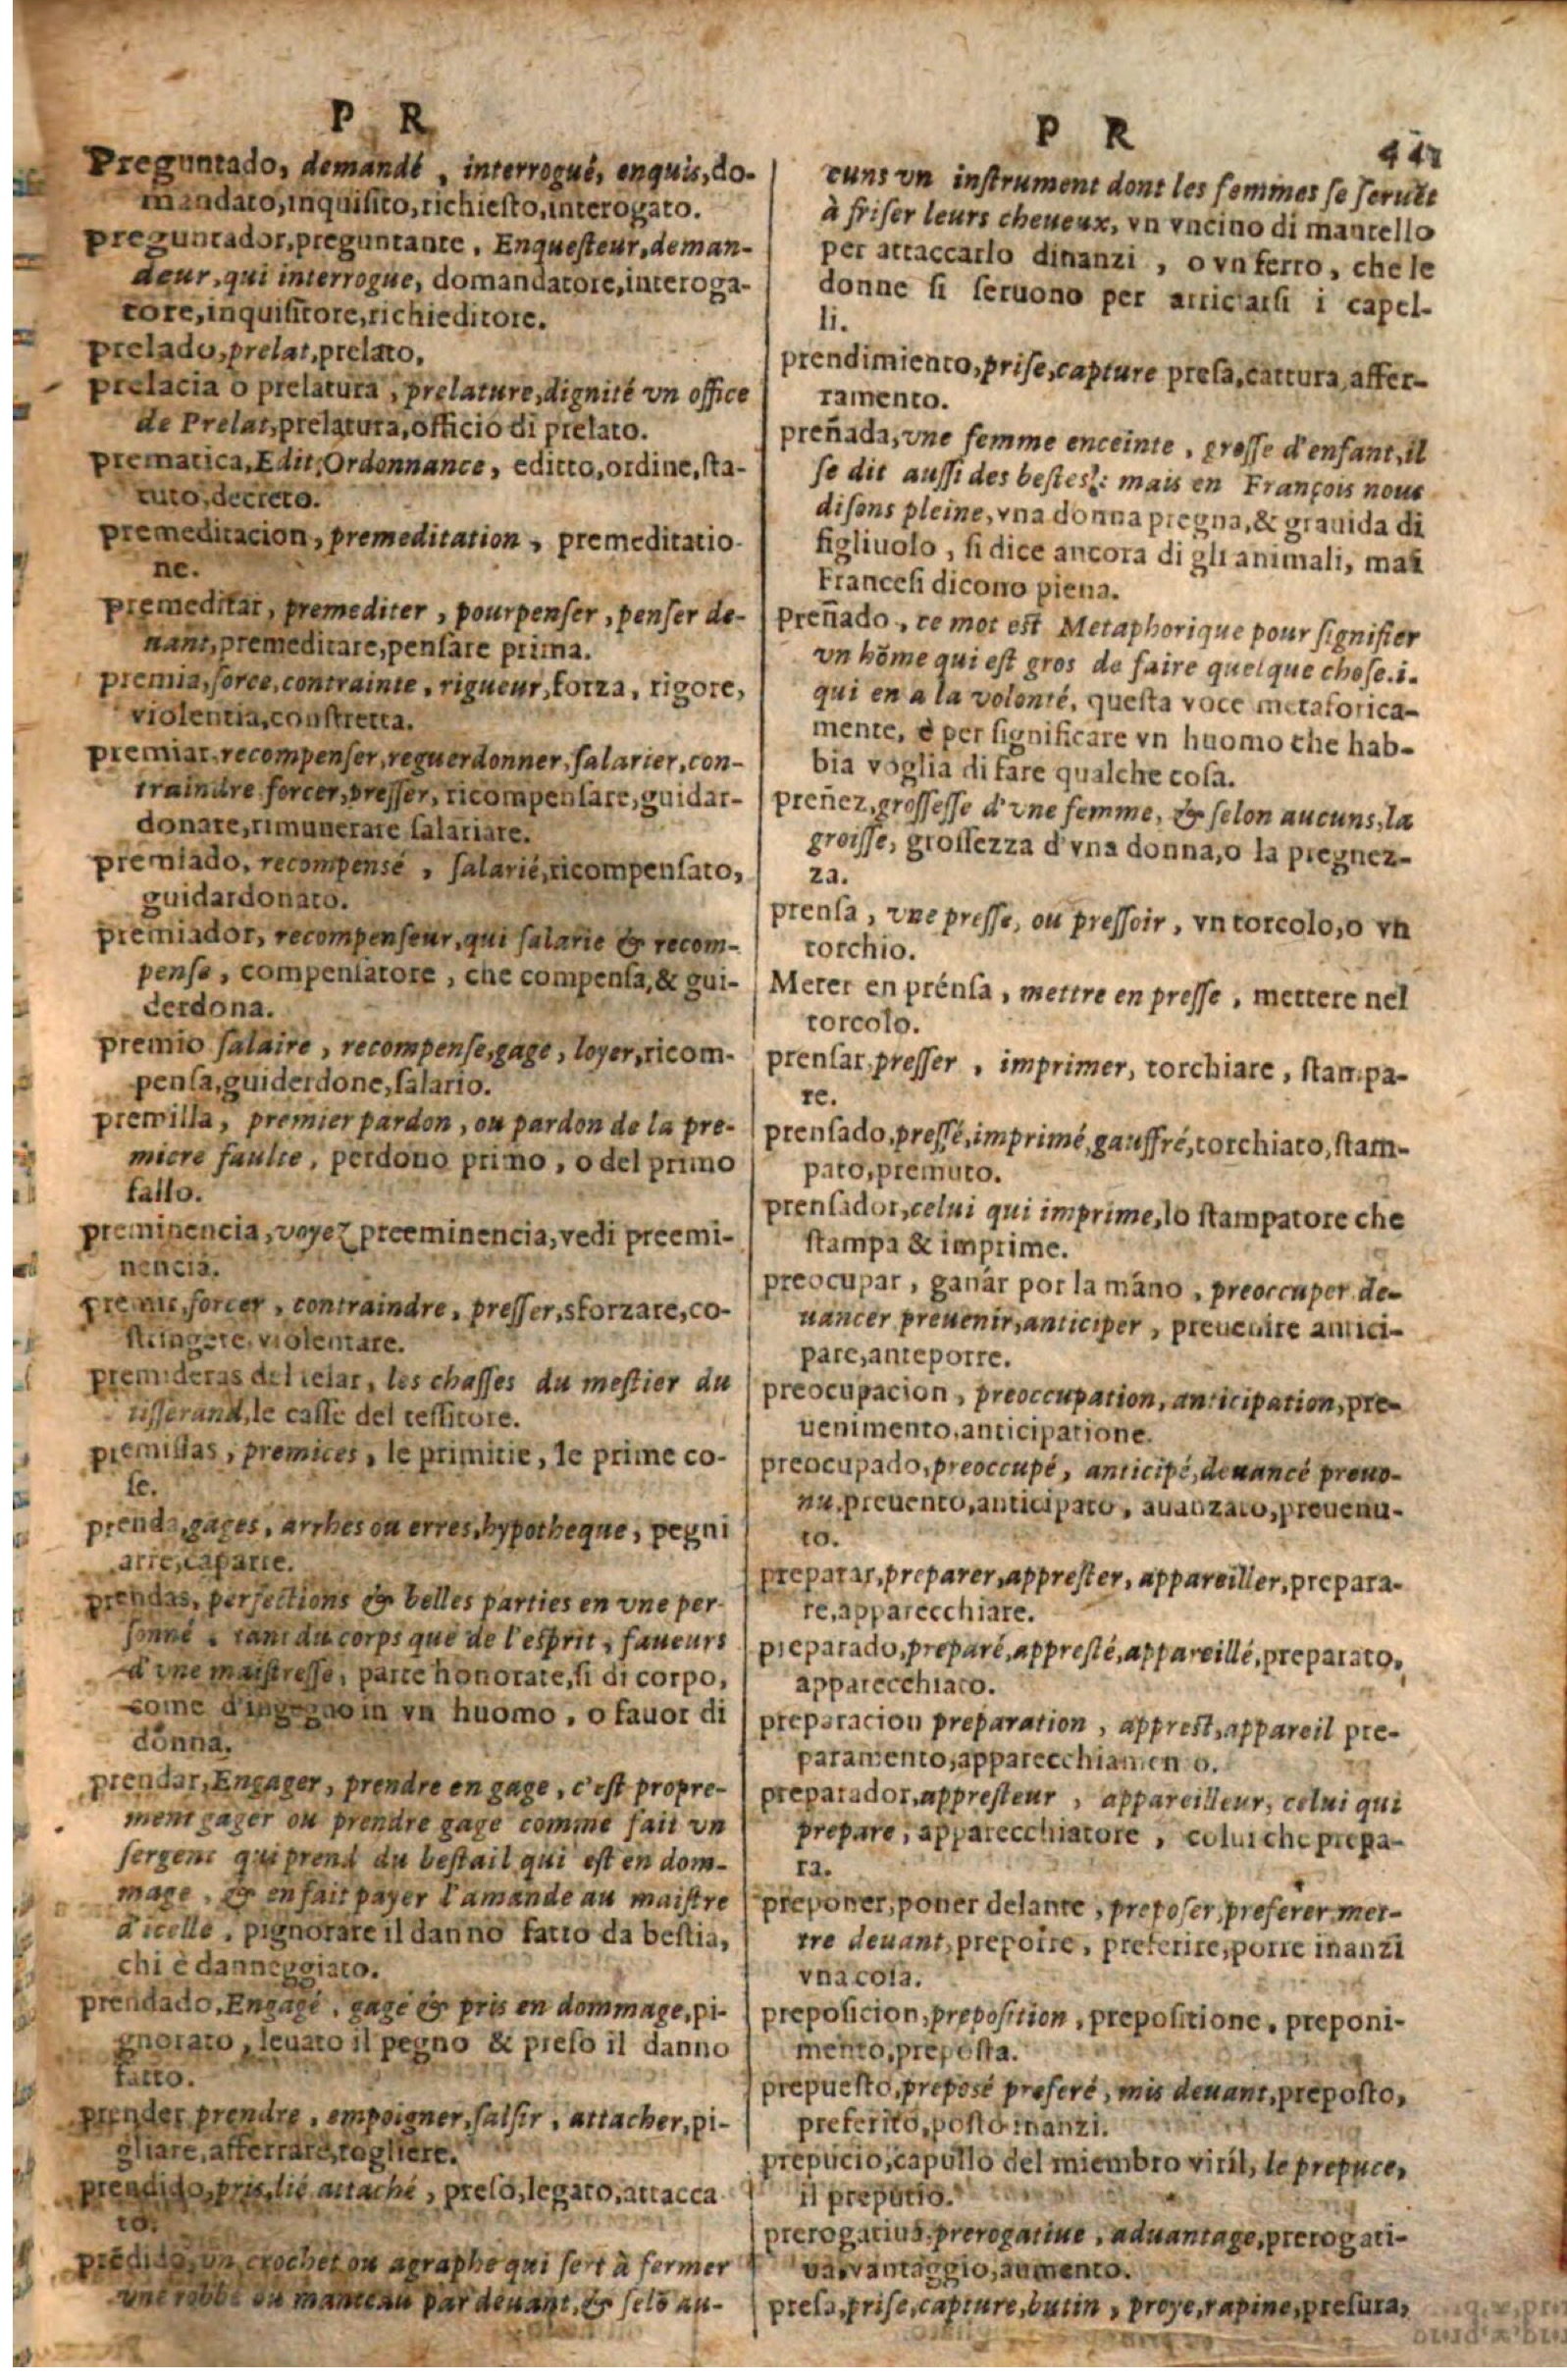 P R
Preguntado, demandé, interrogué, enquis, do-
mandato, inquisito, richiesto, interogato.
preguntador, preguntante, Enquesteur, deman-
deur, qui interrogue, domandatore, interoga-
tore, inquisitore, richieditore.
prelado, prelat, prelato,
prelacia o prelatura, prelature, dignité vn office
de Prelat, prelatura, officio di prelato.
prematica, Edit, Ordonnance, editto, ordine, sta-
tuto, decreto.
premeditacion, premeditation, premeditatio-
ne.
premeditar, premediter, pourpenser, penser de-
uant, premeditare, pensare prima.
premia, force, contrainte, rigueur, forza, rigore,
violentia, constretta.
premiar, recompenser, reguerdonner, salarier, con-
traindre forcer, presser, ricompensare, guidar-
donare, rimunerare salariare.
premiado, recompensé, salarié, ricompensato,
guidardonato.
premiador, recompenseur, qui salarie & recom-
pense, compensatore, che compensa, & gui-
derdona.
premio salaire, recompense, gage, loyer, ricom-
pensa, guiderdone, salario.
premilla, premier pardon, ou pardon de la pre-
miere faulte, perdono primo, o del primo
fallo.
preminencia, voyez preeminencia, vedi preemi-
nencia.
forcer, contraindre, presser, sforzare, co-
stringere, violentare.
premideras del telar, les chasses du mestier du
tisserand, le casse del tessitore.
premissas, premices, le primitie, le prime co-
se.
prenda, gages, arrhes ou erres, hypotheque, pegni
arre, caparre.
prendas, perfections & belles parties en vne per-
sonne, tant du corps que de l'esprit, faueurs
d'vne maistresse, parte honorate, si di corpo,
come d'ingegno in vn huomo, o fauor di
donna.
prendar, Engager, prendre en gage, c'est propre-
ment gager ou prendre gage comme fait vn
sergent qui prend du bestail qui est en dom-
mage, & en fait payer l'amande au maistre
d'icelle, pignorare il danno fatto da bestia,
chi è danneggiato.
prendado, Engagé, gagé & pris en dommage, pi-
gnorato, leuato il pegno & preso il danno
fatto.
prender prendre, empoigner, saisir, attacher, pi-
gliare, afferrare, togliere.
prendido, pris, lié attaché, preso, legato, attacca
to.
prēdido, vn crochet ou agraphe qui sert à fermer
vne robbe ou manteau par deuant, & selō au-
P R
cuns vn instrument dont les femmes se seruēt
à friser leurs cheueux, vn vncino di mantello
per attaccarlo dinanzi, o vn ferro, che le
donne si seruono per arricciarsi i capel-
li.
prendimiento, prise, capture presa, cattura, affer-
ramento.
preñada, vne femme enceinte, grosse d'enfant, il
se dit aussi des bestes: mais en François nous
disons pleine, vna donna pregna, & grauida di
figliuolo, si dice ancora di gli animali, mai
Francesi dicono piena.
Preñado, ce mot est Metaphorique pour signifier
vn hōme qui est gros de faire quelque chose .i.
qui en a la volonté, questa voce metaforica-
mente, è per significare vn huomo che hab-
bia voglia di fare qualche cosa.
preñez, grossesse d'vne femme, & selon aucuns, la
groisse, grossezza d'vna donna, o la pregnez-
za.
prensa, vne presse, ou pressoir, vn torcolo, o vn
torchio.
Meter en prénsa, mettre en presse, mettere nel
torcolo.
prensar, presser, imprimer, torchiare, stampa-
re.
prensado, pressé, imprimé, gauffré, torchiato, stam-
pato, premuto.
prensador, celui qui imprime, lo stampatore che
stampa & imprime.
preocupar, ganár por la máno, preoccuper de-
uancer preuenir, anticiper, preuenire antici-
pare, anteporre.
preocupacion, preoccupation, anticipation, pre-
uenimento, anticipatione.
preocupado, preoccupé, anticipé, deuancé preue-
nu, preuento, anticipato, auanzato, preuenu-
to.
preparar, preparer, apprester, appareiller, prepara-
re, apparecchiare.
preparado, preparé, appresté, appareillé, preparato,
apparecchiato.
preparacion preparation, apprest, appareil pre-
paramento, apparecchiamen o.
preparador, appresteur, appareilleur, celui qui
prepare, apparecchiatore, colui che prepa-
ra.
preponer, poner delante, preposer, preferer met-
tre deuant, preporre, preferire, porre inanzi
vna cosa.
preposicion, preposition, prepositione, preponi-
mento, preposta.
prepuesto, preposé preferé, mis deuant, preposto,
preferito, posto inanzi.
prepucio, capullo del miembro viril, le prepuce,
il preputio.
prerogatiua, prerogatiue, aduantage, prerogati-
ua, vantaggio, aumento.
presa, prise, capture, butin, proye, rapine, presura,